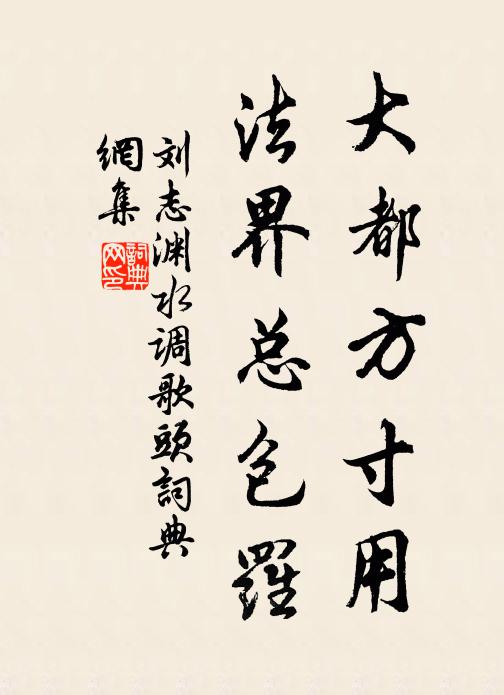 大都方寸用
法界总包罗
刘志渊水调歌頭詞典
網集
詞典
网印